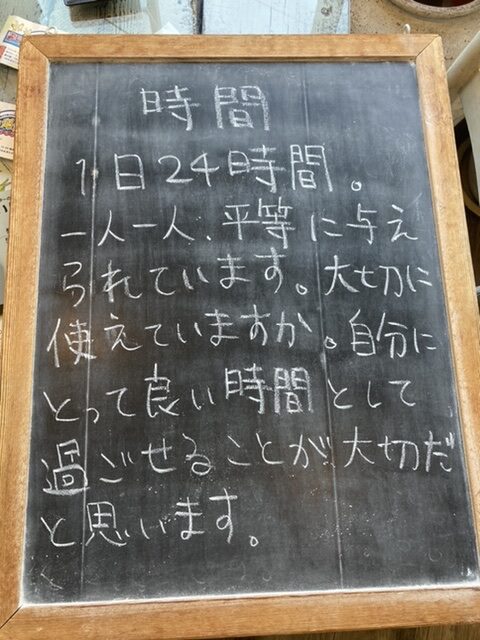 時間
1日24時間。
一人一人、平等に与え
られています。大切に
使えていますか。自分に
とって良い時間として
過ごせることが大切だ
と思います。